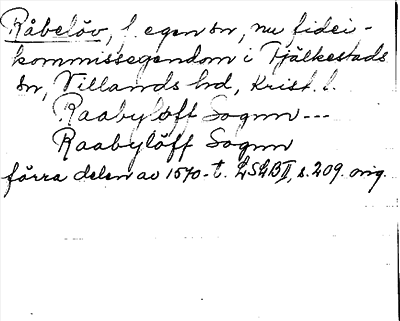 Råbelöv, f. egen sn, nu fidei-
kommissegendom i Fjälkestads
sn, Villands hd, Krist. l.
Raabylöff Sognn ---
Raabylöff Sogun
förra delen av 1570-t. LSLB II, s. 209. orig.